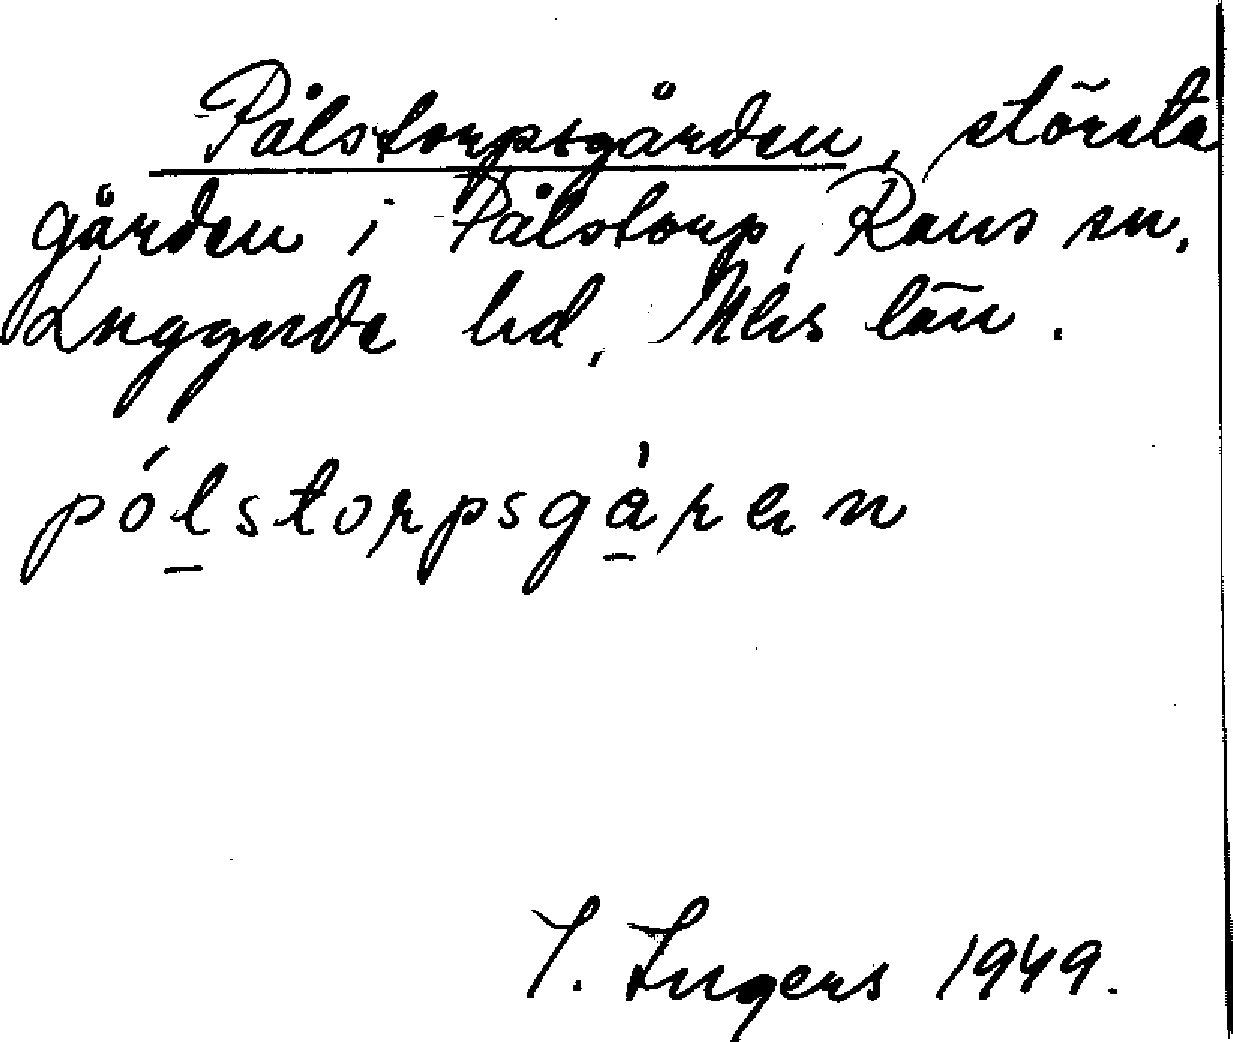 Pålstorpsgården, största
gården i Pålstorp, Raus sn,
Luggude hd, Mhs län.
pólstorpsgàren
I. Ingers 1949.